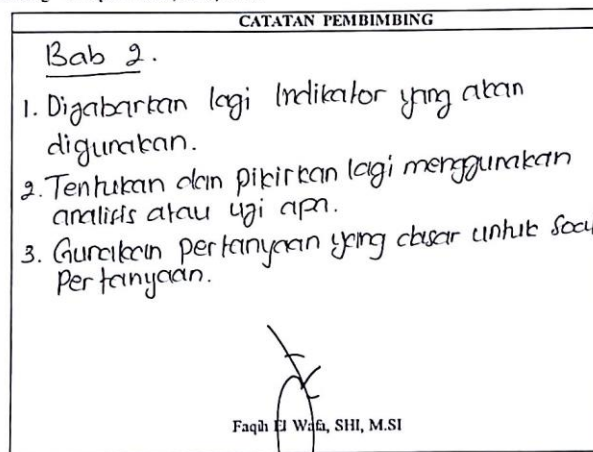 CATATAN PEMBIMBING
Bab 2.
1. Dijabarkan lagi Indikator yang akan
digunakan.
2. Tentukan dan pikirkan lagi menggunakan
analisis atau uji apa.
3. Gunakan pertanyaan yang dasar untuk
pertanyaan.
Faqih El Wafa, SHI, M.SI